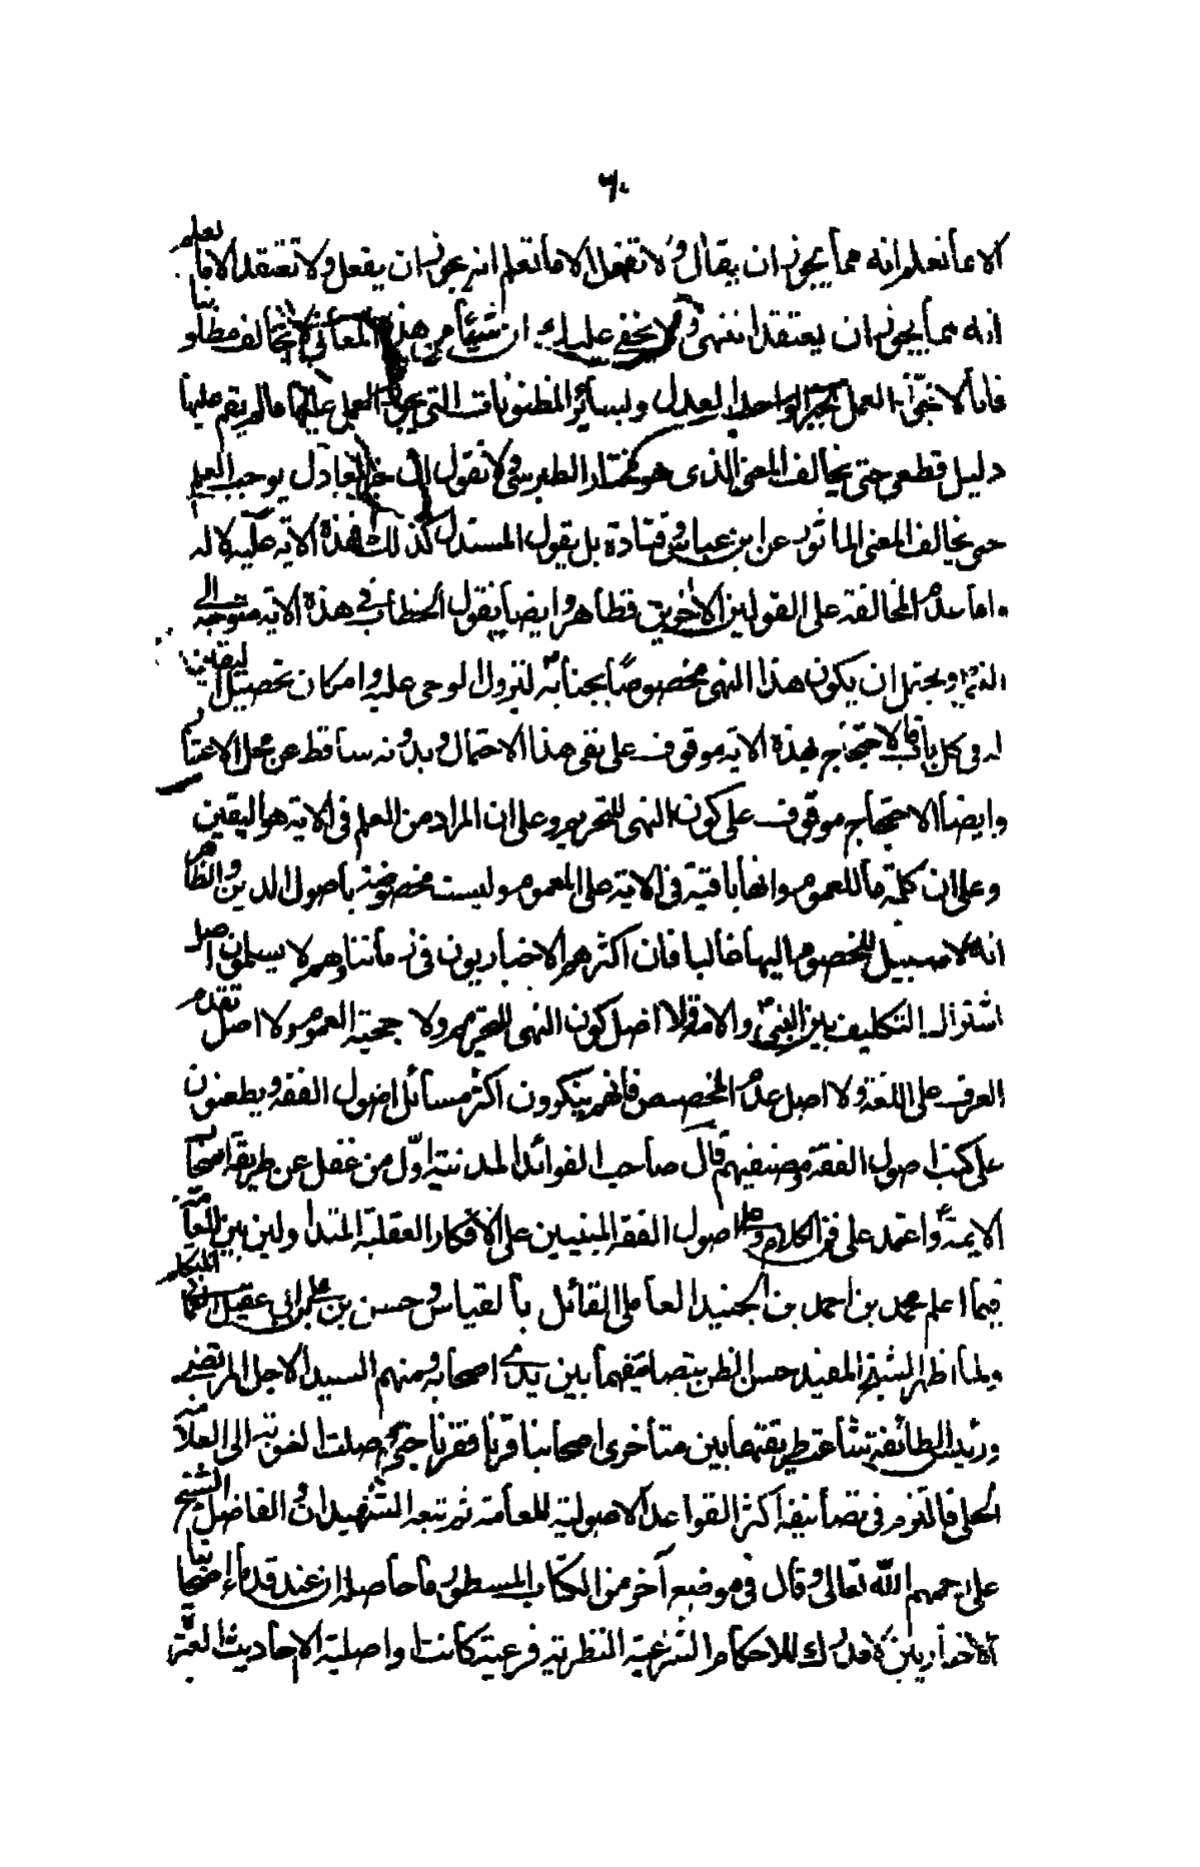 ٦٠
الا ما تعلم انه مما يجوز ان يقال ولا تفعل الا ما تعلم انه يجوز ان يفعل ولا تعتقد الا ما تعلم
انه مما يجوز ان يعتقد انتهى ولا يخفى عليك ان شيئا من هذه المعاني لا يخالف مطلوبنا
فانا لا نجوز العمل بخبر الواحد العدل وبسائر المظنونات التي يجوز العمل عليها ما لم يقم عليها
دليل قطعي حتى يخالف المعنى الذى هو مختار الطبرسي ولا نقول ان خبر العادل يوجب العلم
حتى يخالف المعنى الماثور عن ابن عباس وقتادة بل يقول المستدل كذلك فهذه الاية عليه لا له
اما عدم المخالفة على القولين الاخرين فظاهر وايضا نقول الخطاب في هذه الاية متوجه الى
النبي ويحتمل ان يكون هذا النهى مخصوصا بجنابه لنزول الوحى عليه وامكان تحصيل اليقين
له في كل باب فالاحتجاج بهذه الاية موقوف على نفى هذا الاحتمال وبدونه ساقط عن محل الاعتبار
وايضا الاحتجاج موقوف على كون النهى للتحريم وعلى ان المراد من العلم فى الاية هو اليقين
وعلى ان كلمة ما للعموم وانها باقية فى الاية على العموم وليست مخصوصة باصول الدين والظاهر
انه لا سبيل للخصوم اليها غالبا فان اكثرهم الاخباريون فى زماننا وهم لا يسلمون اصل
اشتراك التكليف بين النبى والامة ولا اصل كون النهى للتحريم ولا حجية العموم ولا اصل تقدم
العرف على اللغة ولا اصل عدم المخصص فانهم ينكرون اكثر مسائل اصول الفقه ويطعنون
على كتب اصول الفقه ومصنفيهم قال صاحب الفوائد المدنية اول من غفل عن طريقة اصحاب
الايمة واعتمد على فن الكلام وعلى اصول الفقه المبنيين على الافكار العقلية المتداولين بين العامة
فيما اعلم محمد بن احمد بن الجنيد العامل القائل بالقياس وحسن بن على بن ابي عقيل العماني المتكلم
ولما اظهر الشيخ المفيد حسن الظن بتصانيفهما بين يدى اصحابه ومنهم السيد الاجل المرتضى
ورئيس الطائفة شاعت طريقتهما بين متأخرى اصحابنا قرنا فقرنا حتى وصلت النوبة الى العلامة
الحلى فالتزم فى تصانيفه اكثر القواعد الاصولية للعامة ثم تبعه الشهيدان والفاضل الشيخ
على رحمهم الله تعالى وقال فى موضع آخر من الكتاب المسطور ما حاصله ان عند قدماء اصحابنا
الاخباريين لا مدرك للاحكام الشرعية النظرية فرعية كانت او اصلية الا حاديث العترة